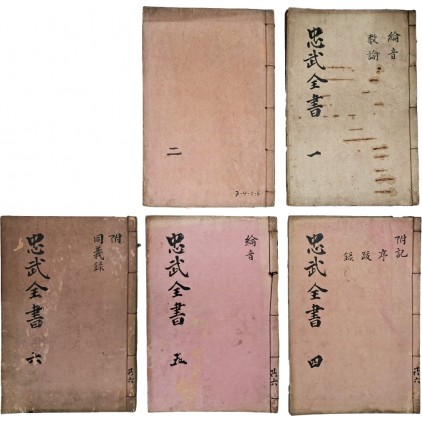 綸音
教諭
忠武全書 一
二
附記
序
跋
忠武全書 四
共六
綸音
忠武全書 五
共六
附
同義錄
忠武全書 六
共六